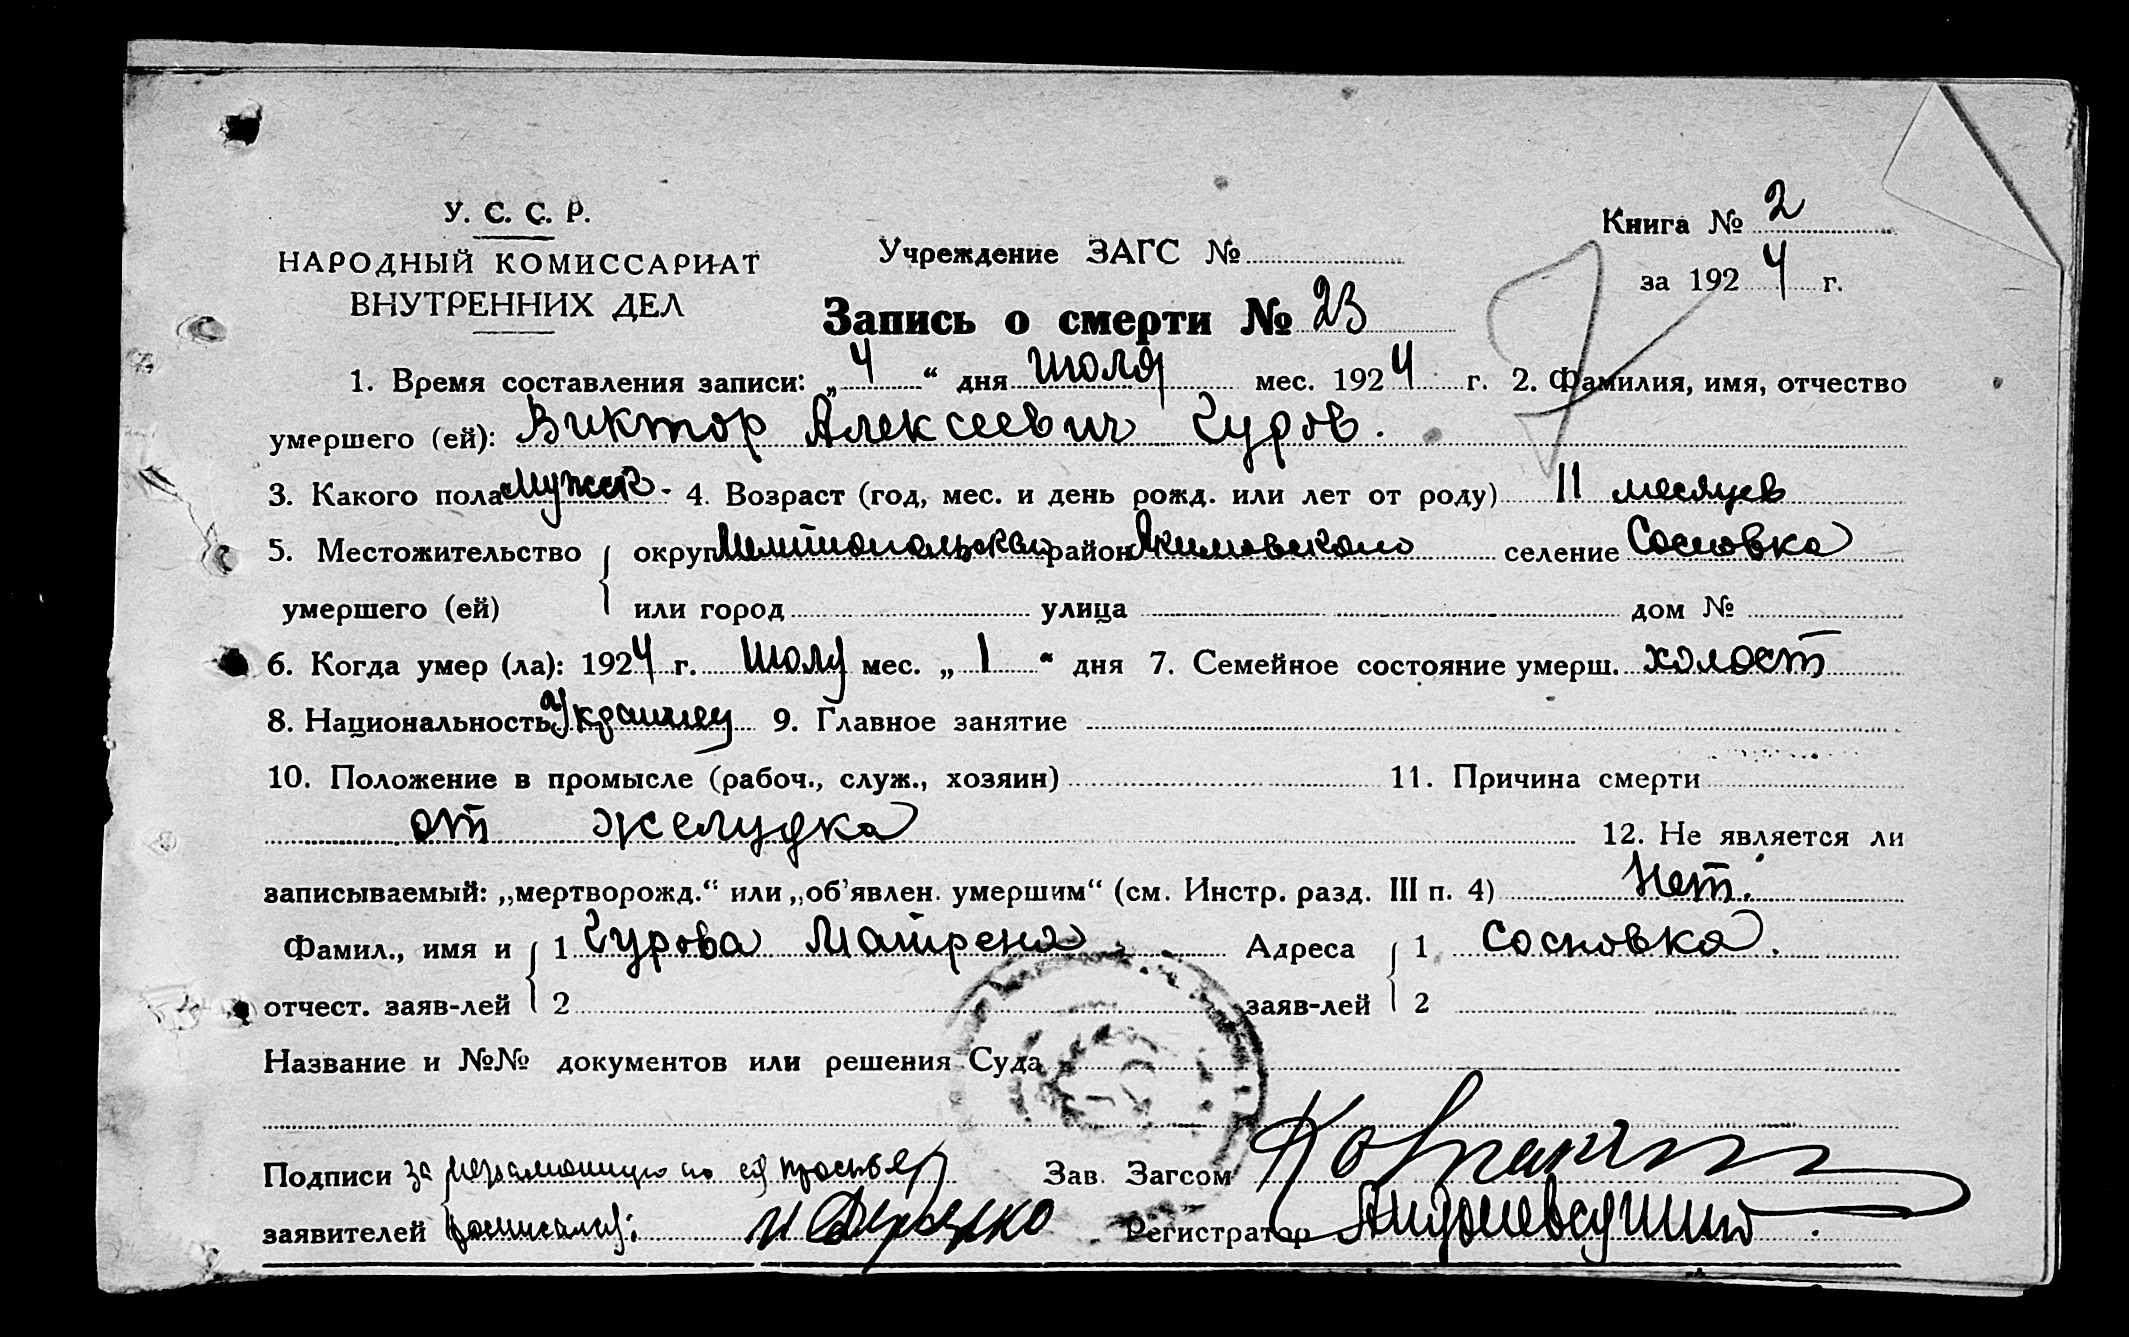 У. С. С. Р.
НАРОДНЫЙ КОМИССАРИАТ
ВНУТРЕННИХ ДЕЛ
Учреждение ЗАГС №
Книга № 2
за 1924 г.
Запись о смерти № 23
1. Время составления записи: „4“ дня июля мес. 1924 г. 2. Фамилия, имя, отчество
умершего (ей): Виктор Алексеевич Чуров.
3. Какого пола мужск. 4. Возраст (год, мес. и день рожд. или лет от роду) 11 месяцев
5. Местожительство округ Мелитопольская район Якимовского селение Сосновка
умершего (ей) или город улица дом №
6. Когда умер (ла): 1924 г. июлу мес. „1“ дня 7. Семейное состояние умерш. холост
8. Национальность Украинец 9. Главное занятие
10. Положение в промысле (рабоч., служ., хозяин) 11. Причина смерти
от желудка 12. Не является ли
записываемый: „мертворожд.“ или „об’явлен. умершим“ (см. Инстр. разд. III п. 4) Нет.
Фамил., имя и 1 Чурова Матрена Адреса 1 Сосновка.
отчест. заяв-лей 2 заяв-лей 2
Название и №№ документов или решения Суда
Подписи за неграмотную по её просьбе Зав. Загсом
заявителей Регистратор